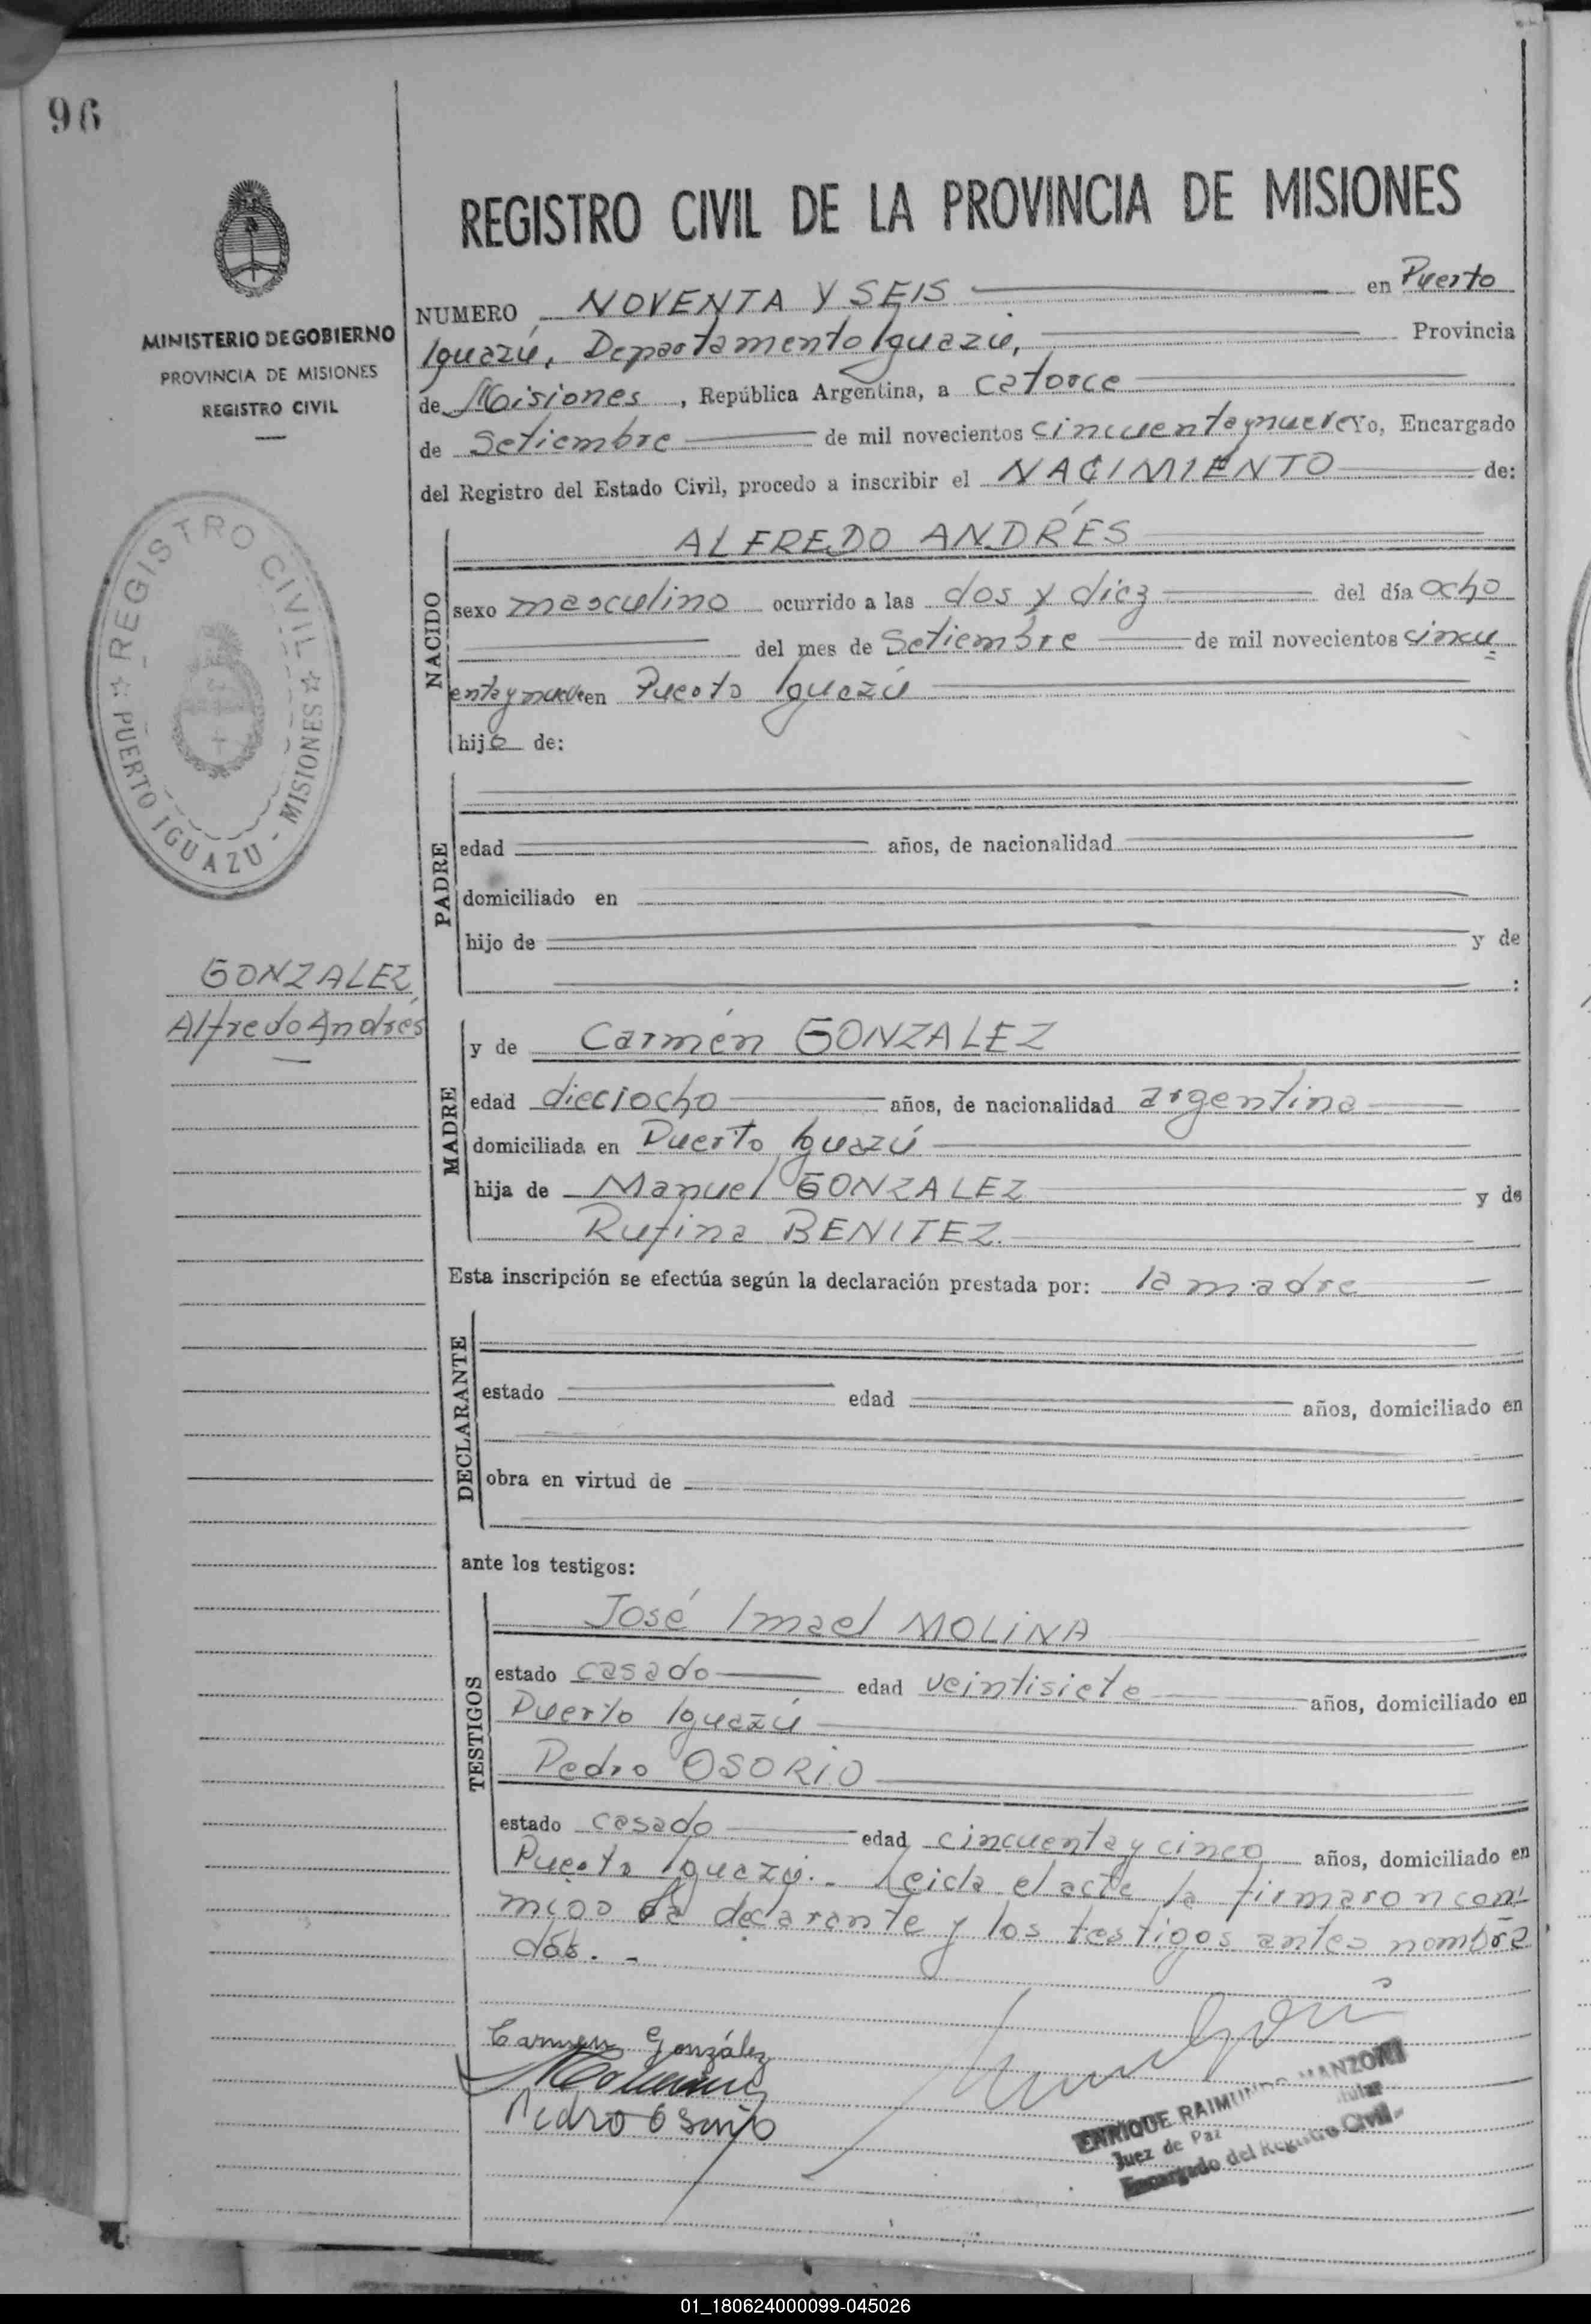 96
MINISTERIO DE GOBIERNO
PROVINCIA DE MISIONES
REGISTRO CIVIL
REGISTRO CIVIL
PUERTO IGUAZU - MISIONES
GONZALEZ,
Alfredo Andrés
REGISTRO CIVIL DE LA PROVINCIA DE MISIONES
NUMERO NOVENTA Y SEIS en Puerto
Iguazú, Departamento Iguazú, Provincia
de Misiones, República Argentina, a catorce
de Setiembre de mil novecientos cincuenta y nueve Yo, Encargado
del Registro del Estado Civil, procedo a inscribir el NACIMIENTO de:
NACIDO
ALFREDO ANDRÉS
sexo masculino ocurrido a las dos y diez del día ocho
del mes de Setiembre de mil novecientos cincu=
enta y nueve en Puerto Iguazú
hijo de:
PADRE
edad años, de nacionalidad
domiciliado en
hijo de y de
:
MADRE
y de Carmen GONZALEZ
edad dieciocho años, de nacionalidad argentina
domiciliada en Puerto Iguazú
hija de Manuel GONZALEZ y de
Rufina BENITEZ.
Esta inscripción se efectúa según la declaración prestada por: la madre
DECLARANTE
estado edad años, domiciliado en
obra en virtud de
ante los testigos:
TESTIGOS
José Imael MOLINA
estado casado edad veintisiete años, domiciliado en
Puerto Iguazú
Pedro OSORIO
estado casado edad cincuenta y cinco años, domiciliado en
Puerto Iguazú.- Leida el acta la firmaron con-
migo la decarante y los testigos antes nombra
dos.-
Carmen González
Pedro Osorio
ENRIQUE RAIMUNDO MANZONI
Juez de Paz Titular
Encargado del Registro Civil
01_180624000099-045026